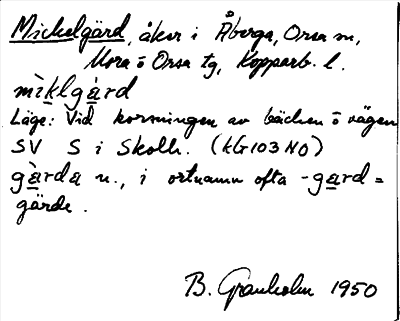 Mickelgärd, åker i Åberga, Orsa sn,
Mora o Orsa tg, Kopparb. l.
mìklgàrd
Läge: Vid korsningen av bäcken o vägen
SV S i Skolh. (kG103NO)
gàrda n., i ortnamn ofta -gard =
gärde.
B. Granholm 1950